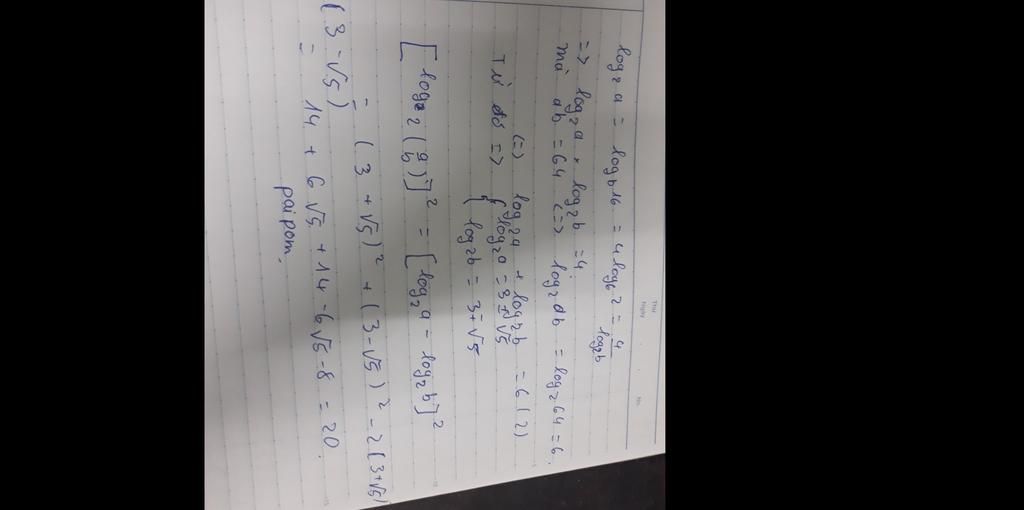 Thứ
Ngày
No.
log₂a = log_b16 = 4log_b2 = 4/log₂b
=> log₂a × log₂b = 4.
mà ab = 64 <=> log₂ab = log₂64 = 6.
<=> log₂a + log₂b = 6 (2)
Từ đó => { log₂a = 3 ± √5
log₂b = 3 ∓ √5
[log₂(a/b)]² = [log₂a = log₂b]²
= (3 + √5)² + (3 - √5)² - 2(3 + √5)
(3 - √5)
= 14 + 6√5 + 14 - 6√5 - 8 = 20.
paipom.